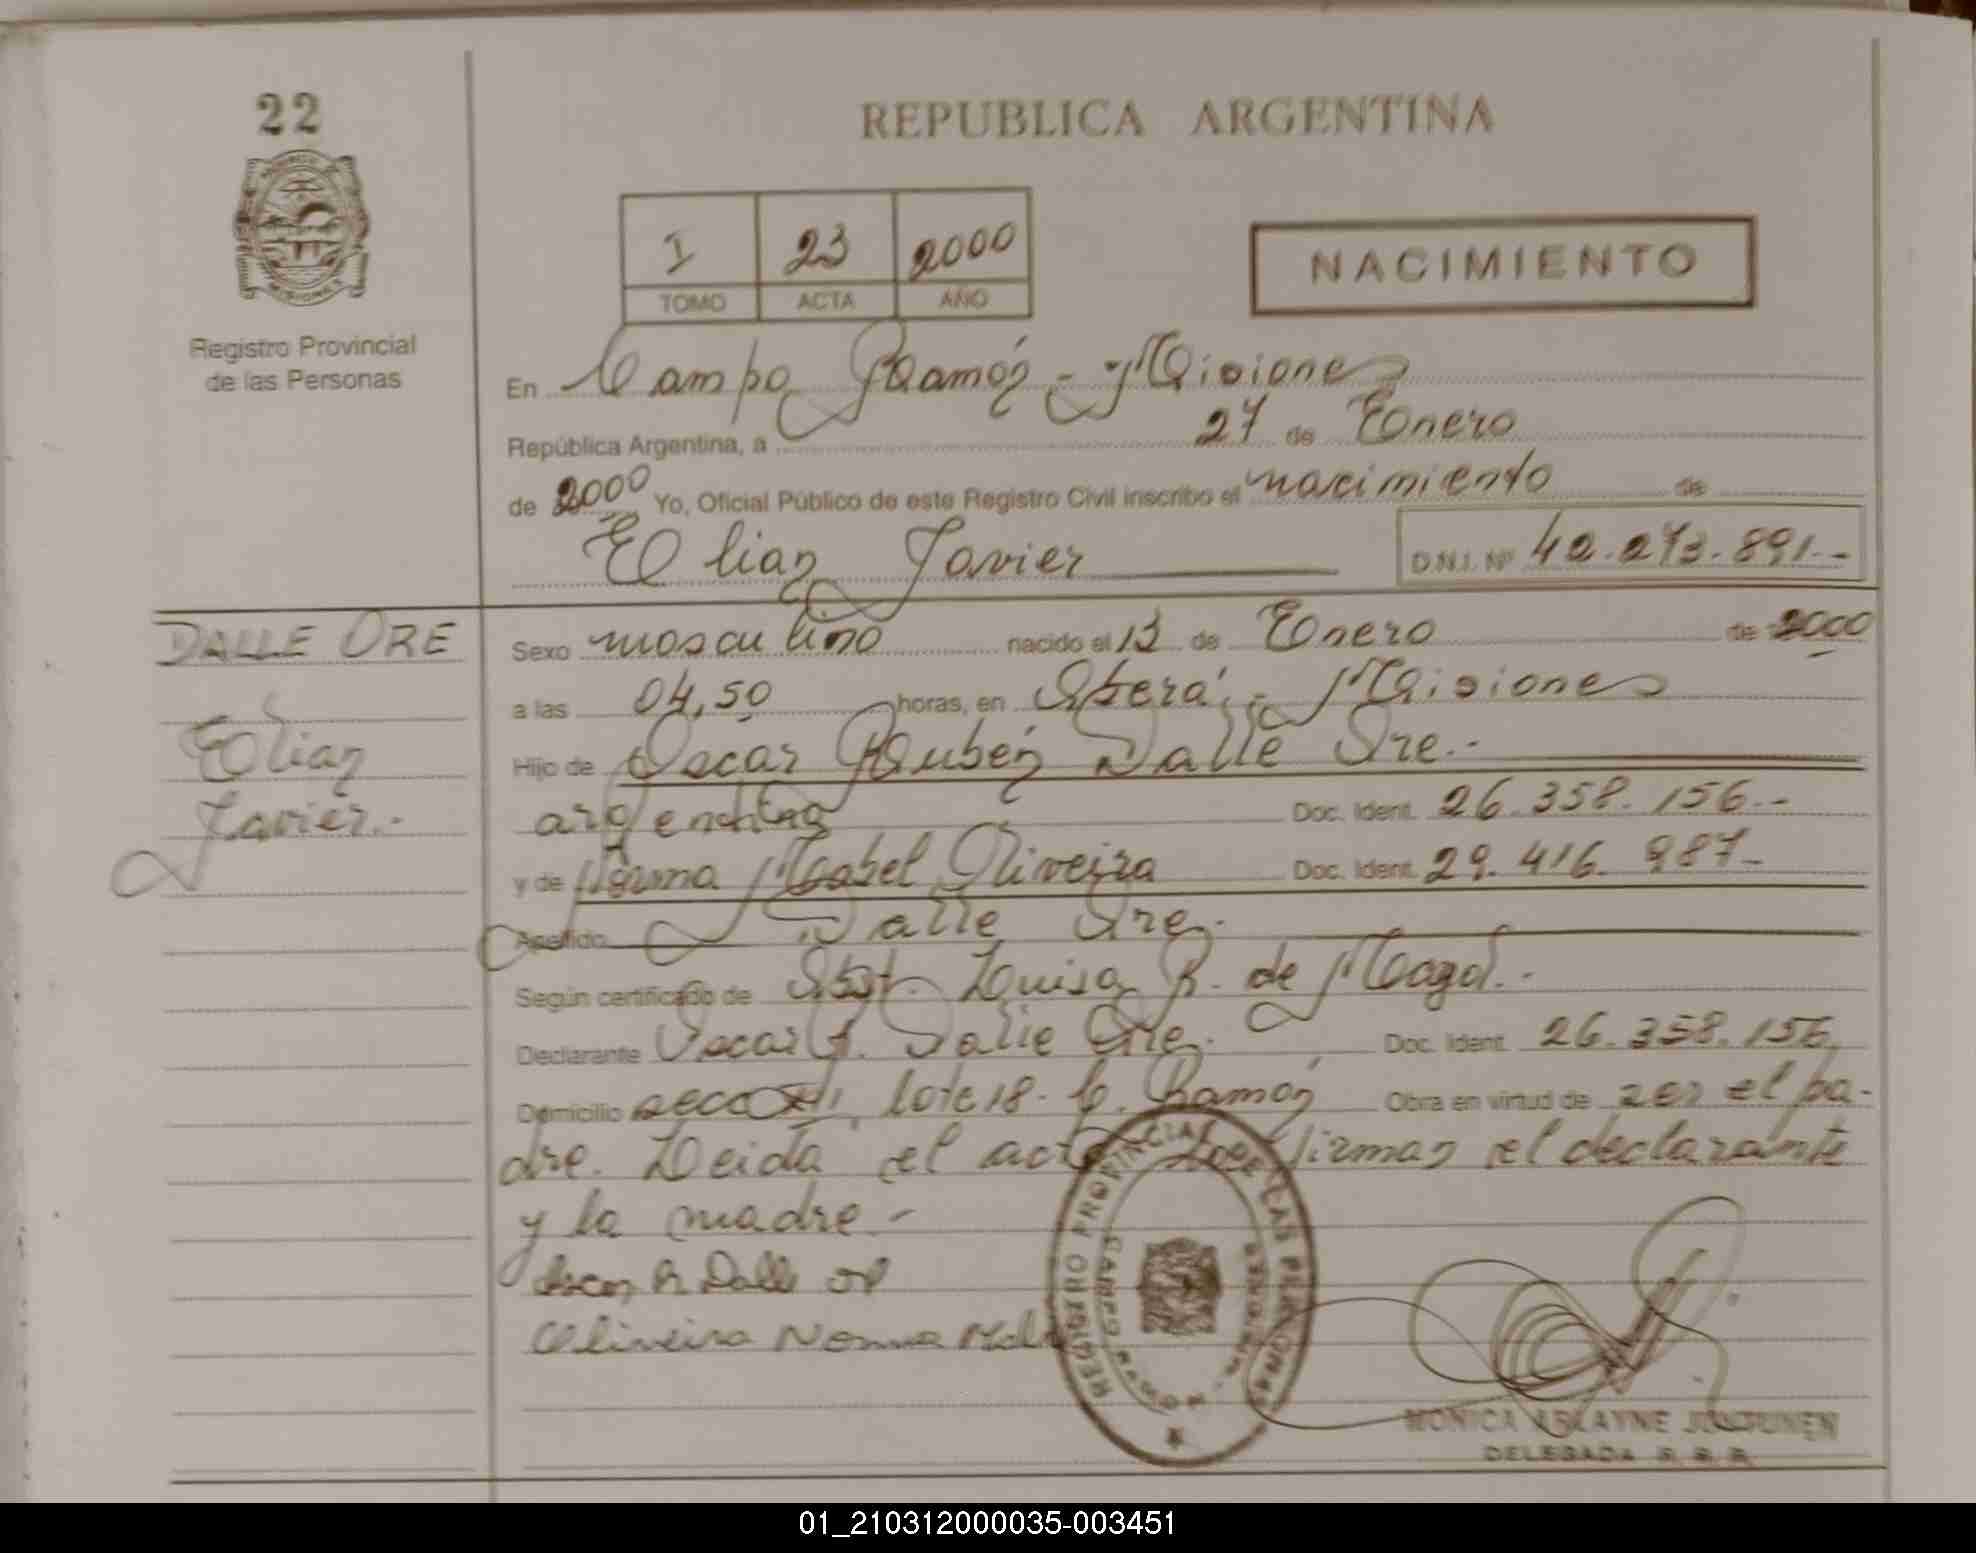 22
REPUBLICA ARGENTINA
I 23 2000
TOMO ACTA AÑO
NACIMIENTO
MISIONES
Registro Provincial
de las Personas
En Campo Ramón - Misiones
República Argentina, a 27 de Enero
de 2000 Yo, Oficial Público de este Registro Civil inscribo el nacimiento de
Elian Javier D.N.I. Nº 42.273.891.-
DALLE ORE
Elian
Javier.-
Sexo masculino nacido el 13 de Enero de 2000
a las 04,50 horas, en Oberá - Misiones
Hijo de Oscar Rubén Dalle Ore.-
argentina Doc. Ident. 26.358.156.-
y de Norma Mabel Oliveira Doc. Ident. 29.416.987-
Apellido Dalle Ore.
Según certificado de Obst. Luisa R. de
Declarante Oscar R. Dalle Ore. Doc. Ident. 26.358.156
Domicilio lote 18. C. Ramón Obra en virtud de ser el pa-
dre. Leida el acta firman el declarante
y la madre -
Oscar R Dalle or
Oliveira Norma
REGISTRO PROVINCIAL DE LAS PERSONAS
CAMPO RAMON - MISIONES
MONICA JUNTUNEN
DELEGADA
01_210312000035-003451